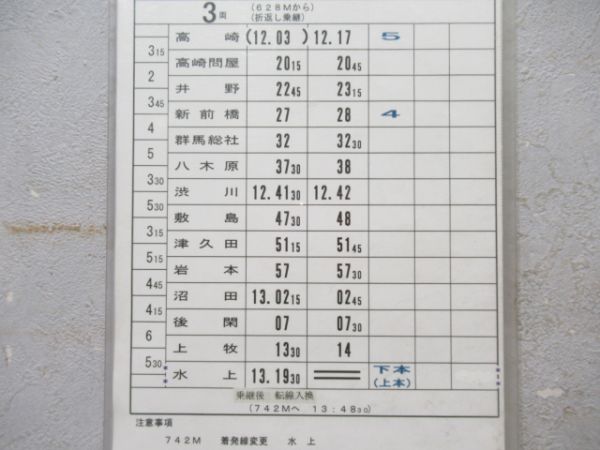 3両 (628Mから)
(折返し乗継)
高崎 (12.03) 12.17 5
3 15
高崎問屋 20 15 20 45
2
井野 22 45 23 15
3 45
新前橋 27 28 4
4
群馬総社 32 32 30
5
八木原 37 30 38
3 30
渋川 12.41 30 12.42
5 30
敷島 47 30 48
3 15
津久田 51 15 51 45
5 15
岩本 57 57 30
4 45
沼田 13.02 15 02 45
4 15
後閑 07 07 30
6
上牧 13 30 14
5 30
水上 13.19 30 下本
(上本)
乗継後 転線入換
(742Mへ 13:48 30)
注意事項
742M 着発線変更 水上